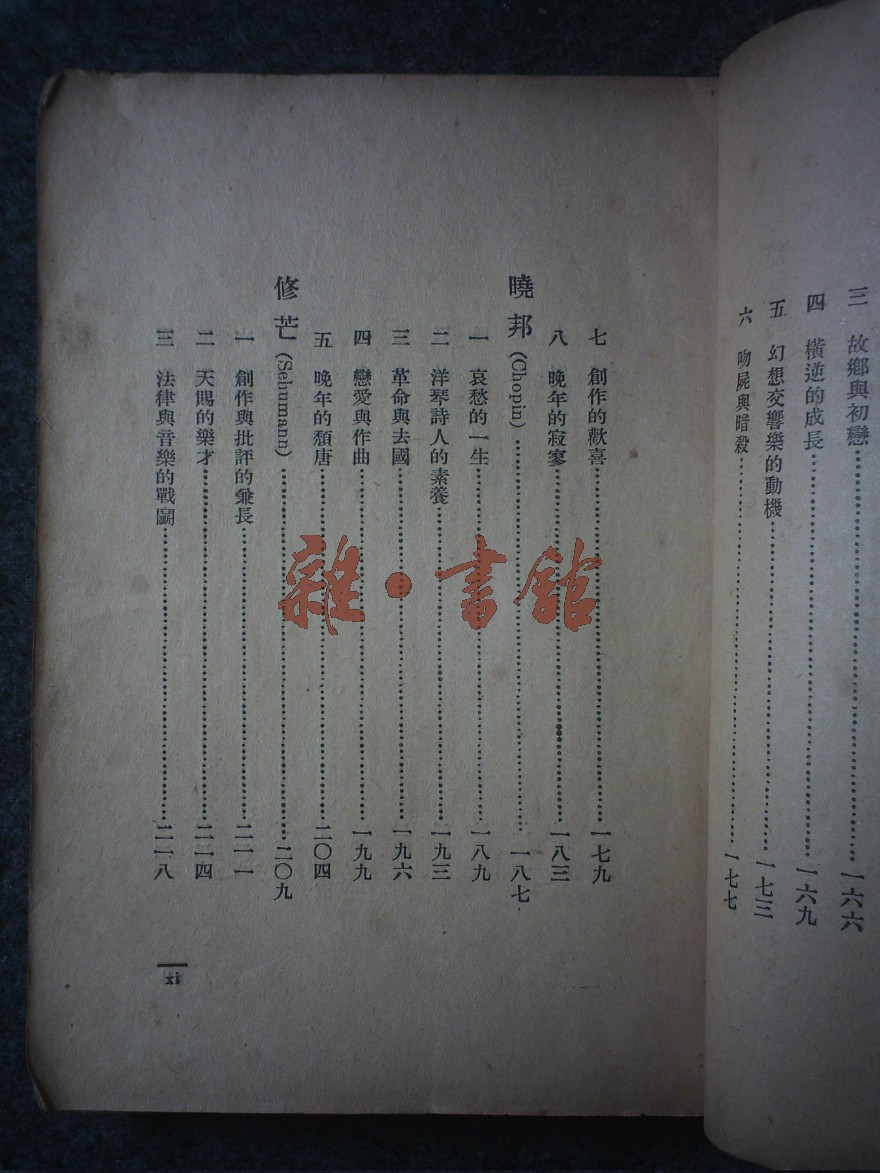 三　故鄉與初戀……一六六
四　橫逆的成長……一六九
五　幻想交響樂的動機……一七三
六　吻屍與暗殺……一七七
七　創作的歡喜……一七九
八　晚年的寂寥……一八三
曉邦 (Chopin)……一八七
一　哀愁的一生……一八九
二　洋琴詩人的素養……一九三
三　革命與去國……一九六
四　戀愛與作曲……一九九
五　晚年的頹唐……二〇四
修芒 (Sehumann)……二〇九
一　創作與批評的兼長……二一一
二　天賜的樂才……二一四
三　法律與音樂的戰鬭……二一八
xi
雜·書館